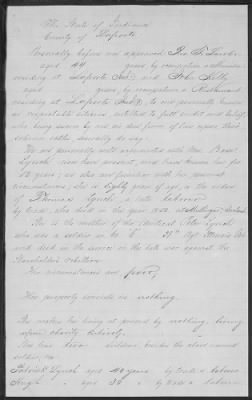 The State of Indiana
County of Laporte
Personally before me appeared Geo. B.
aged 44 years, by occupation a
residing at Laporte Ind and John Kelly
aged years, by occupation a
residing at Laporte Ind, to me personally known
as respectable citizens, entitled to full credit and belief,
who being sworn by me in due form of law upon their
solemn oaths, severally do say:
We are personally well acquainted with Mrs. Rose
Lynch now here present, and have known her for
12 years; we also are familiar with her general
circumstances; she is eighty years of age, is the widow
of Thomas Lynch, a late laborer
by trade, who died in the year 1852 at Ireland
She is the mother of the identical Peter Lynch
who was a soldier in Co. Regt
and died in the service in the late war against the
Slaveholder's rebellion.
Her circumstances are poor
Her property consists in nothing.
She makes her living at present by nothing, being
upon charity entirely.
She has two children besides the above named
soldier, viz:
Patrick Lynch aged 40 years by trade a laborer
Hugh " aged 36 " by trade a laborer